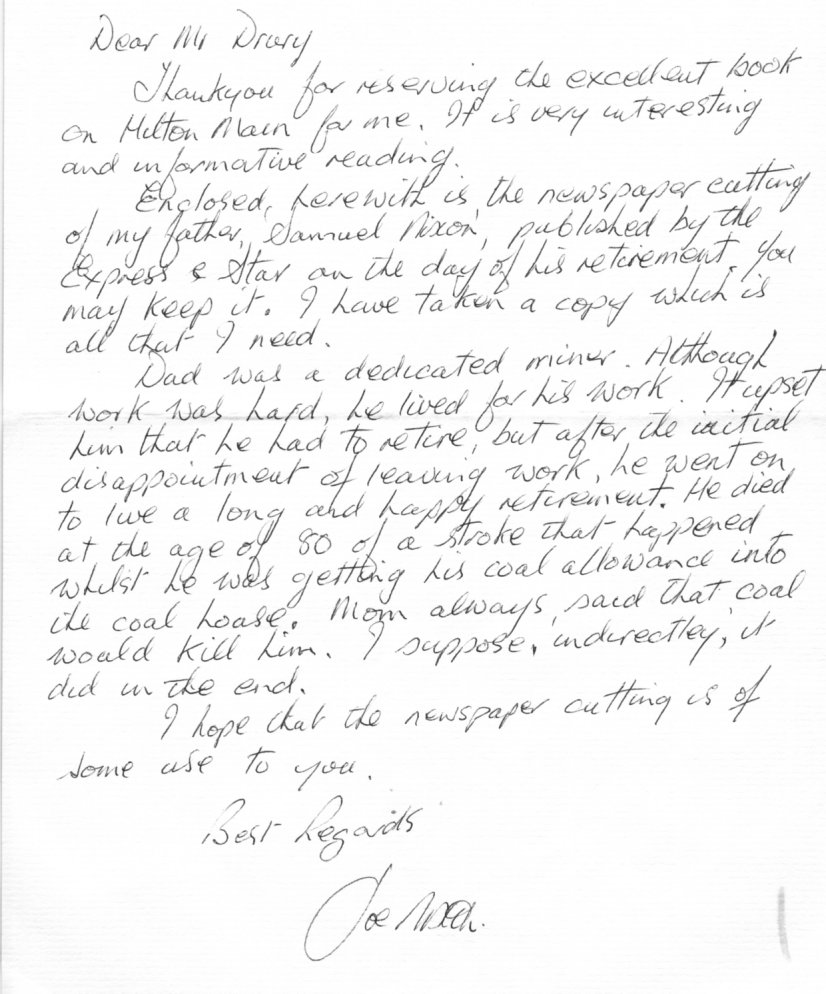 Dear Mr Drury
Thankyou for reserving the excellent book
on Hilton Main for me. It is very interesting
and informative reading.
Enclosed, herewith is the newspaper cutting
of my father, Samuel Nixon, published by the
Express & Star on the day of his retirement. You
may keep it. I have taken a copy which is
all that I need.
Dad was a dedicated miner. Although
work was hard, he lived for his work. It upset
him that he had to retire, but after the initial
disappointment of leaving work, he went on
to live a long and happy retirement. He died
at the age of 80 of a stroke that happened
whilst he was getting his coal allowance into
the coal house. Mom always said that coal
would kill him. I suppose, indirectley, it
did in the end.
I hope that the newspaper cutting is of
some use to you.
Best Regards
Joe Nixon.